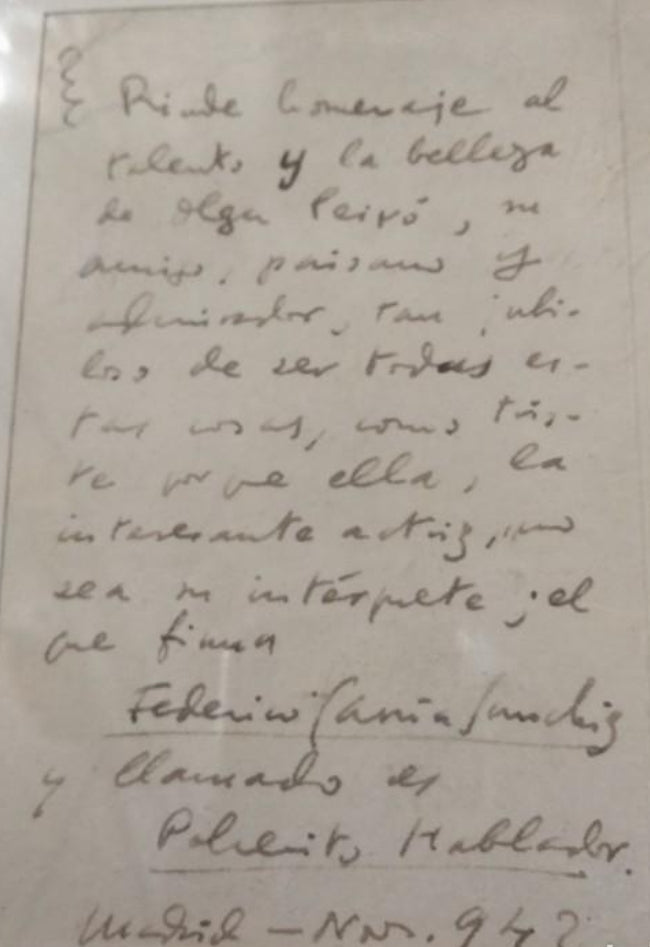 Rinde homenaje al
talento y la belleza
de Olga Peiró, su
amigo, paisano y
admirador, tan jubi-
loso de ser todas es-
tas cosas, como tris-
te porque ella, la
interesante actriz, no
sea su intérprete; el
que firma
Federico García Sanchiz
y llamado
Hablador.
Madrid - Nov. 94